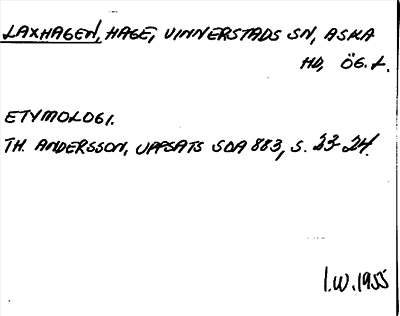 LAXHAGEN, HAGE, VINNERSTADS SN, ASKA
HD, ÖG.L.
ETYMOLOGI.
TH. ANDERSSON, UPPSATS SOA 883, S. 23-24.
I.W. 1955